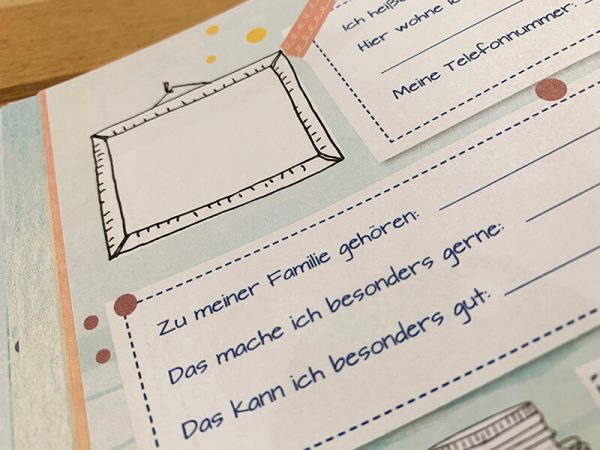 Ich
Hier wohne
Meine Telefonnummer:
Zu meiner Familie gehören:
Das mache ich besonders gerne:
Das kann ich besonders gut: